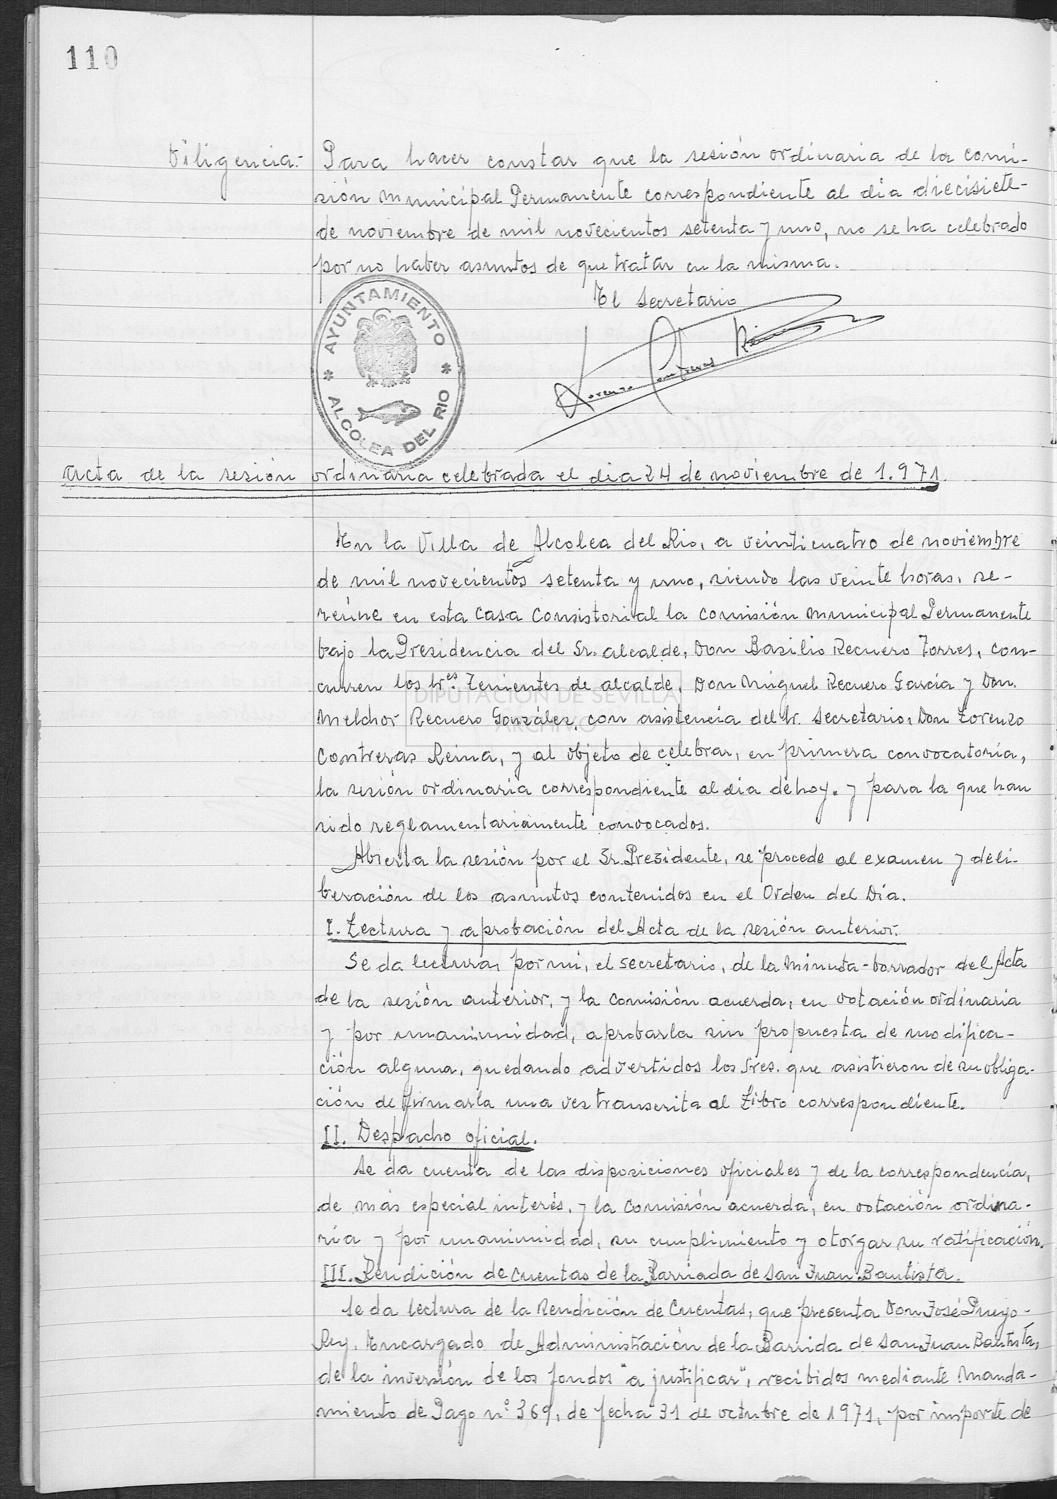 110
Diligencia.- Para hacer constar que la sesión ordinaria de la comi-
sión municipal Permanente correspondiente al dia diecisiete-
de noviembre de mil novecientos setenta y uno, no se ha celebrado
por no haber asuntos de que tratar en la misma.
El Secretario
Lorenzo Contreras Reina
AYUNTAMIENTO
* ALCOLEA DEL RIO *
Acta de la sesión ordinaria celebrada el dia 24 de noviembre de 1.971.
En la Villa de Alcolea del Rio, a veinticuatro de noviembre
de mil novecientos setenta y uno, siendo las veinte horas, se-
reúne en esta Casa Consistorial la Comisión Municipal Permanente
bajo la Presidencia del Sr. Alcalde, Don Basilio Recuero Torres, con-
curren los Sres. Tenientes de alcalde, Don Miguel Recuero García y Don.
Melchor Recuero González, con asistencia del Sr. Secretario, Don Lorenzo
Contreras Reina, y al objeto de celebrar, en primera convocatoria,
la sesión ordinaria correspondiente al dia de hoy. y para la que han
sido reglamentariamente convocados.
Abierta la sesión por el Sr. Presidente, se procede al examen y deli-
beración de los asuntos contenidos en el Orden del Día.
I. Lectura y aprobación del Acta de la sesión anterior.
Se da lectura, por mi, el secretario, de la minuta-borrador del Acta
de la sesión anterior, y la Comisión acuerda, en votación ordinaria
y por unanimidad, aprobarla sin propuesta de modifica-
ción alguna, quedando advertidos los Sres. que asistieron de su obliga-
ción de firmarla una vez transcrita al Libro correspondiente.
II. Despacho oficial.
Se da cuenta de las disposiciones oficiales y de la correspondencia,
de más especial interés, y la Comisión acuerda, en votación ordina-
ria y por unanimidad, su cumplimiento y otorgar su ratificación.
III. Rendición de Cuentas de la Barriada de San Juan Bautista.
Se da lectura de la Rendición de Cuentas, que presenta Don José Pueyo-
Rey, Encargado de Administración de la Barrida de San Juan Bautista,
de la inversión de los fondos "a justificar", recibidos mediante Manda-
miento de Pago nº 369, de fecha 31 de octubre de 1971, por importe de
DIPUTACIÓN DE SEVILLA
ARCHIVO